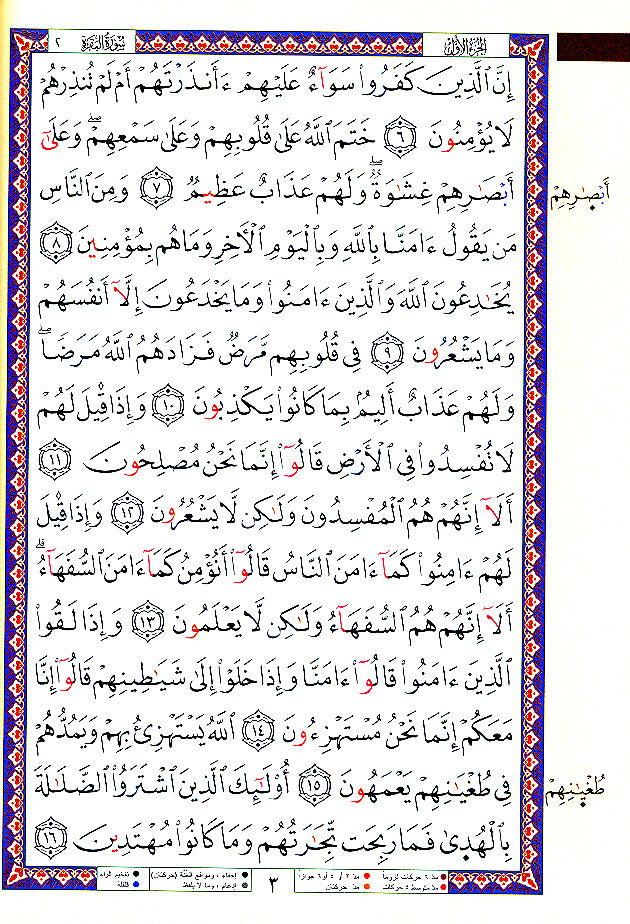 الجزء الأول
سورة البقرة
٢
إِنَّ ٱلَّذِينَ كَفَرُوا۟ سَوَآءٌ عَلَيْهِمْ ءَأَنذَرْتَهُمْ أَمْ لَمْ تُنذِرْهُمْ
لَا يُؤْمِنُونَ ٦ خَتَمَ ٱللَّهُ عَلَىٰ قُلُوبِهِمْ وَعَلَىٰ سَمْعِهِمْ ۖ وَعَلَىٰٓ
أَبْصَٰرِهِمْ غِشَٰوَةٌ ۖ وَلَهُمْ عَذَابٌ عَظِيمٌ ٧ وَمِنَ ٱلنَّاسِ
أَبْصَٰرِهِمْ
مَن يَقُولُ ءَامَنَّا بِٱللَّهِ وَبِٱلْيَوْمِ ٱلْأَخِرِ وَمَا هُم بِمُؤْمِنِينَ ٨
يُخَٰدِعُونَ ٱللَّهَ وَٱلَّذِينَ ءَامَنُوا۟ وَمَا يَخْدَعُونَ إِلَّآ أَنفُسَهُمْ
وَمَا يَشْعُرُونَ ٩ فِى قُلُوبِهِم مَّرَضٌ فَزَادَهُمُ ٱللَّهُ مَرَضًا ۖ
وَلَهُمْ عَذَابٌ أَلِيمٌۢ بِمَا كَانُوا۟ يَكْذِبُونَ ١٠ وَإِذَا قِيلَ لَهُمْ
لَا تُفْسِدُوا۟ فِى ٱلْأَرْضِ قَالُوٓا۟ إِنَّمَا نَحْنُ مُصْلِحُونَ ١١
أَلَآ إِنَّهُمْ هُمُ ٱلْمُفْسِدُونَ وَلَٰكِن لَّا يَشْعُرُونَ ١٢ وَإِذَا قِيلَ
لَهُمْ ءَامِنُوا۟ كَمَآ ءَامَنَ ٱلنَّاسُ قَالُوٓا۟ أَنُؤْمِنُ كَمَآ ءَامَنَ ٱلسُّفَهَآءُ ۗ
أَلَآ إِنَّهُمْ هُمُ ٱلسُّفَهَآءُ وَلَٰكِن لَّا يَعْلَمُونَ ١٣ وَإِذَا لَقُوا۟
ٱلَّذِينَ ءَامَنُوا۟ قَالُوٓا۟ ءَامَنَّا وَإِذَا خَلَوْا۟ إِلَىٰ شَيَٰطِينِهِمْ قَالُوٓا۟ إِنَّا
مَعَكُمْ إِنَّمَا نَحْنُ مُسْتَهْزِءُونَ ١٤ ٱللَّهُ يَسْتَهْزِئُ بِهِمْ وَيَمُدُّهُمْ
فِى طُغْيَٰنِهِمْ يَعْمَهُونَ ١٥ أُو۟لَٰٓئِكَ ٱلَّذِينَ ٱشْتَرَوُا۟ ٱلضَّلَٰلَةَ
طُغْيَٰنِهِمْ
بِٱلْهُدَىٰ فَمَا رَبِحَت تِّجَٰرَتُهُمْ وَمَا كَانُوا۟ مُهْتَدِينَ ١٦
مد ٦ حركات لزوماً
مد ٢ أو ٤ أو ٦ جوازاً
مد متوسط ٥ حركات
مد حركتان
٣
إخفاء، ومواقع الغُنَّة (حركتان)
إدغام، وما لا يلفظ
تفخيم الراء
قلقلة